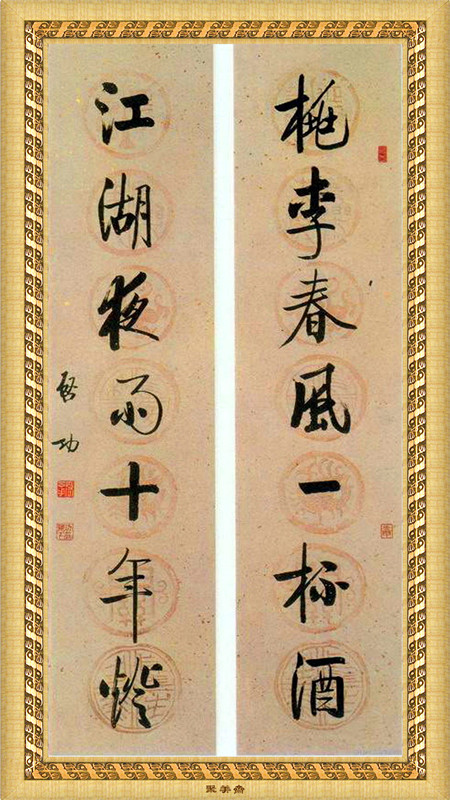 桃李春風一杯酒
江湖夜雨十年燈
啓功
聚美齋